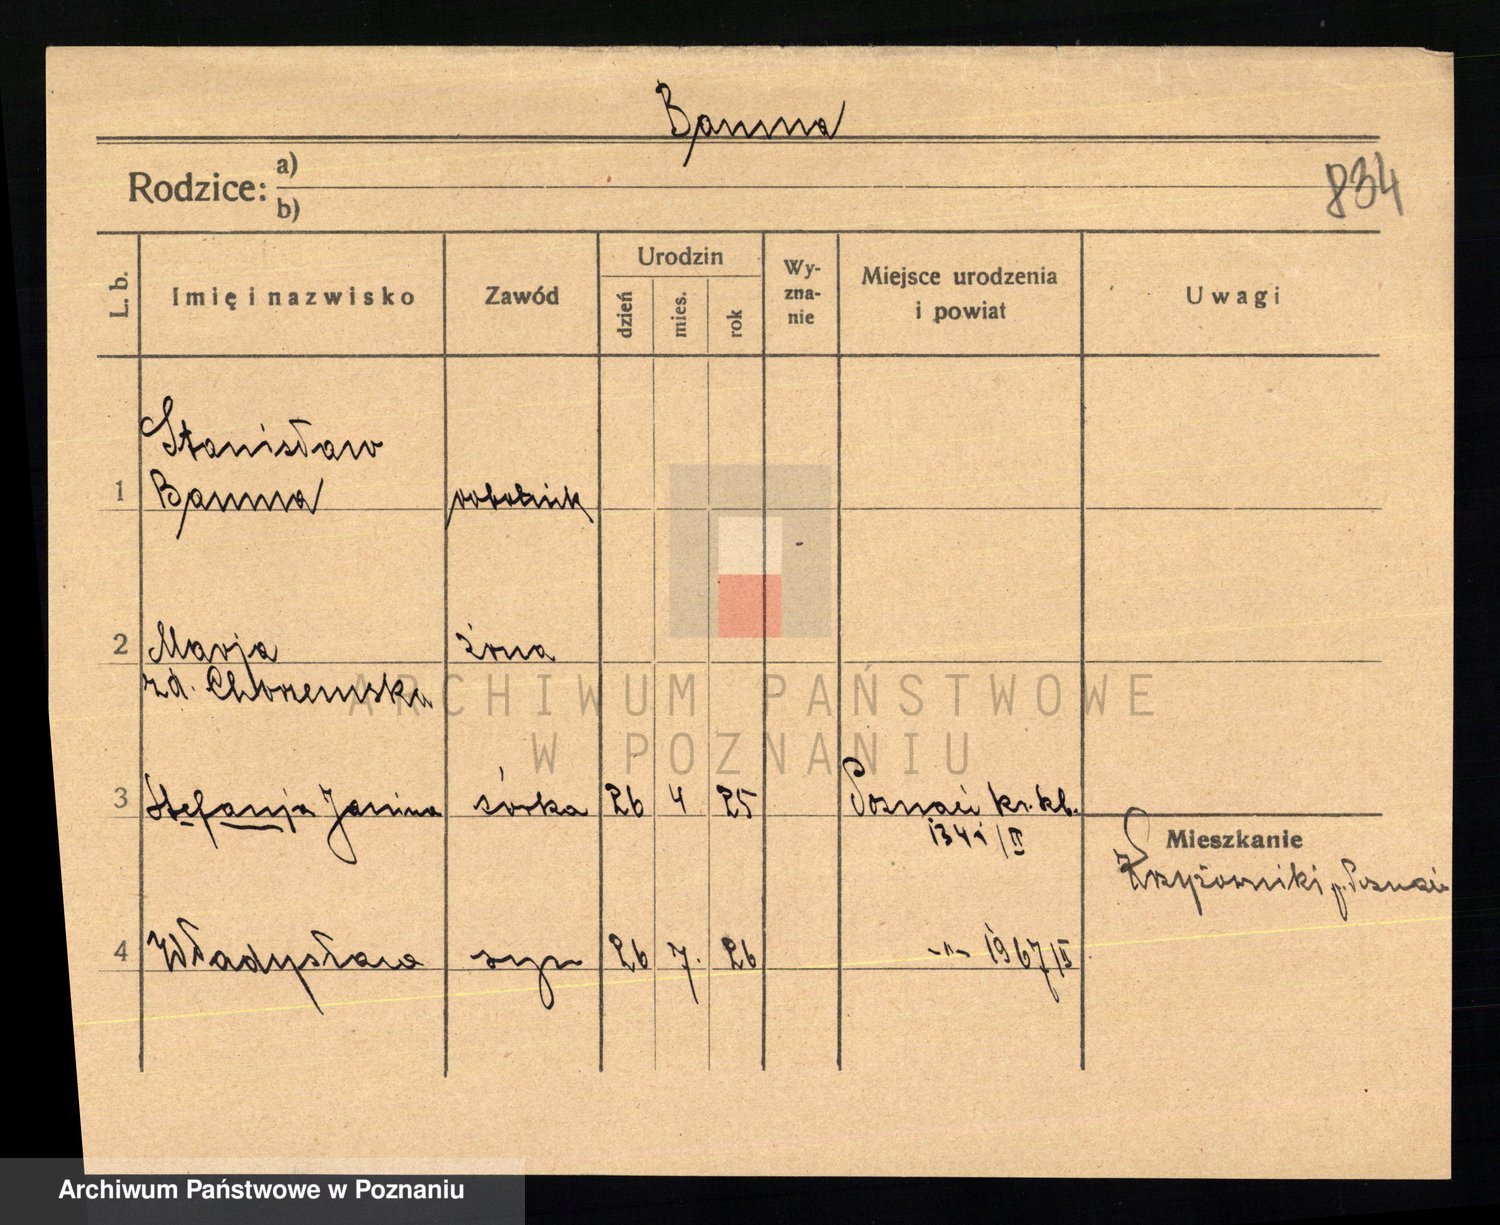 Bamma
834
Rodzice: a)
b)
L. b. Imię i nazwisko Zawód Urodzin dzień mies. rok Wyznanie Miejsce urodzenia i powiat Uwagi
Stanisław
1 Bamma robotnik
2 Marja żona
zd. Chorzemska
3 Stefanja Janina córka 26 4 25 Poznań kr. kl.
1341/II
Mieszkanie
Krzyżowniki p. Poznań
4 Władysław syn 26 7. 26 -"- 1967/II
ARCHIWUM PAŃSTWOWE
W POZNANIU
Archiwum Państwowe w Poznaniu